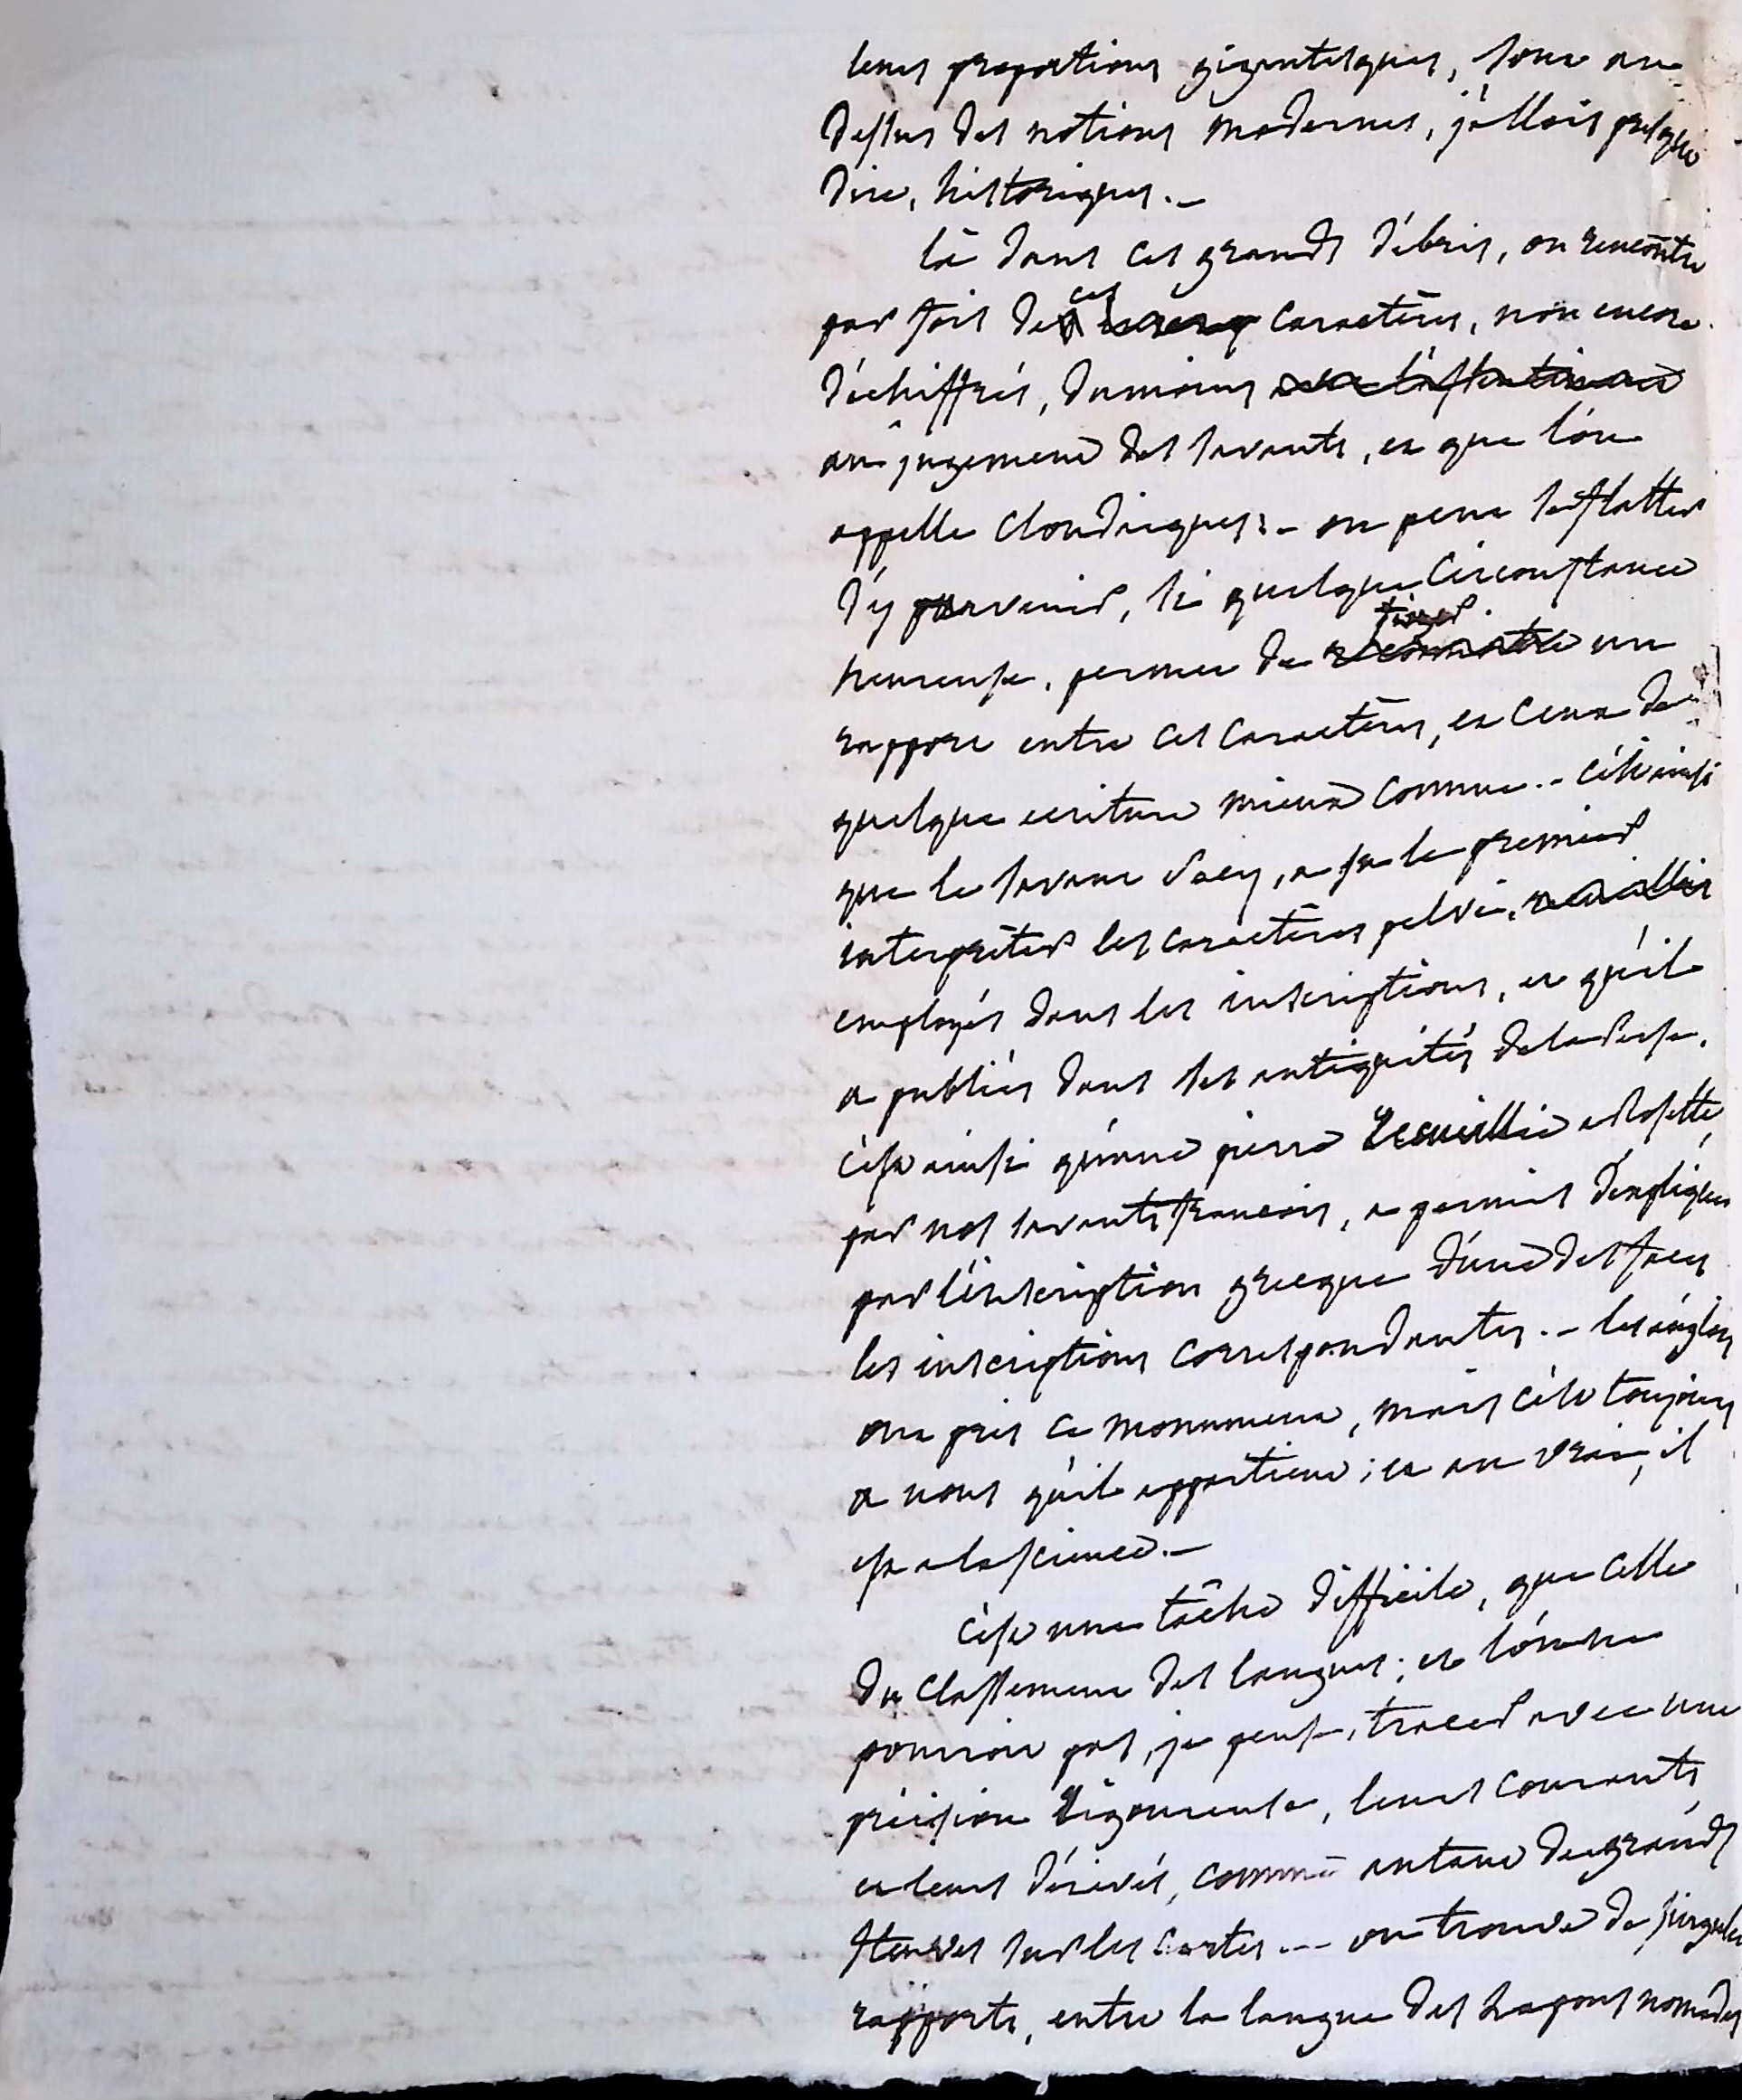 leurs proportions gigantesques, sont au
dessus des notions modernes, j'allois presque
dire, historiques. –
là dans ces grands débris, on rencontre
par fois de ces caractères, non encore
déchiffrés, dumoins
au jugement des savants, et que l'on
appelle – on peut se flatter
d'y parvenir, si quelque circonstance
heureuse, permet de tirer un
rapport entre ces caractères, et ceux de
quelque ecriture mieux connue. – c'est ainsi
que le savant Sacy, a su le premier
interpréter les caractères pelvi,
employés dans les inscriptions, et qu'il
a publiés dans ses antiquités de la Perse.
c'est ainsi qu'une pierre recueillie a Rosette,
par nos savants francois, a permis d'expliquer
par l'inscription grecque d'une des faces
les inscriptions correspondantes. – les anglois
ont pris ce monument, mais c'est toujours
a nous qu'il appartient ; et au vrai, il
est a la science. –
c'est une tâche difficile, que celle
du classement des langues ; et l'on ne
pourroit pas, je pense, tracer avec une
précision rigoureuse, leurs courants,
et leurs dérivés, comme autant de grands
fleuves sur les cartes. -- on trouve de singuliers
rapports, entre la langue des Lapons nomades